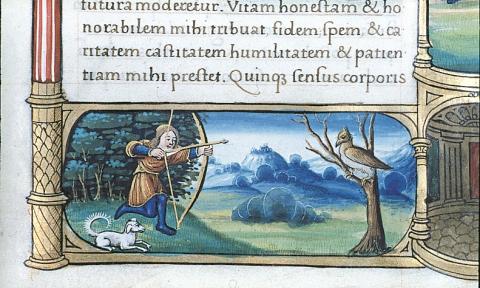 futura moderetur. Vitam honestam & ho
norabilem mihi tribuat, fidem spem, & ca
ritatem castitatem humilitatem & patien
tiam mihi prestet. Quinq; sensus corporis